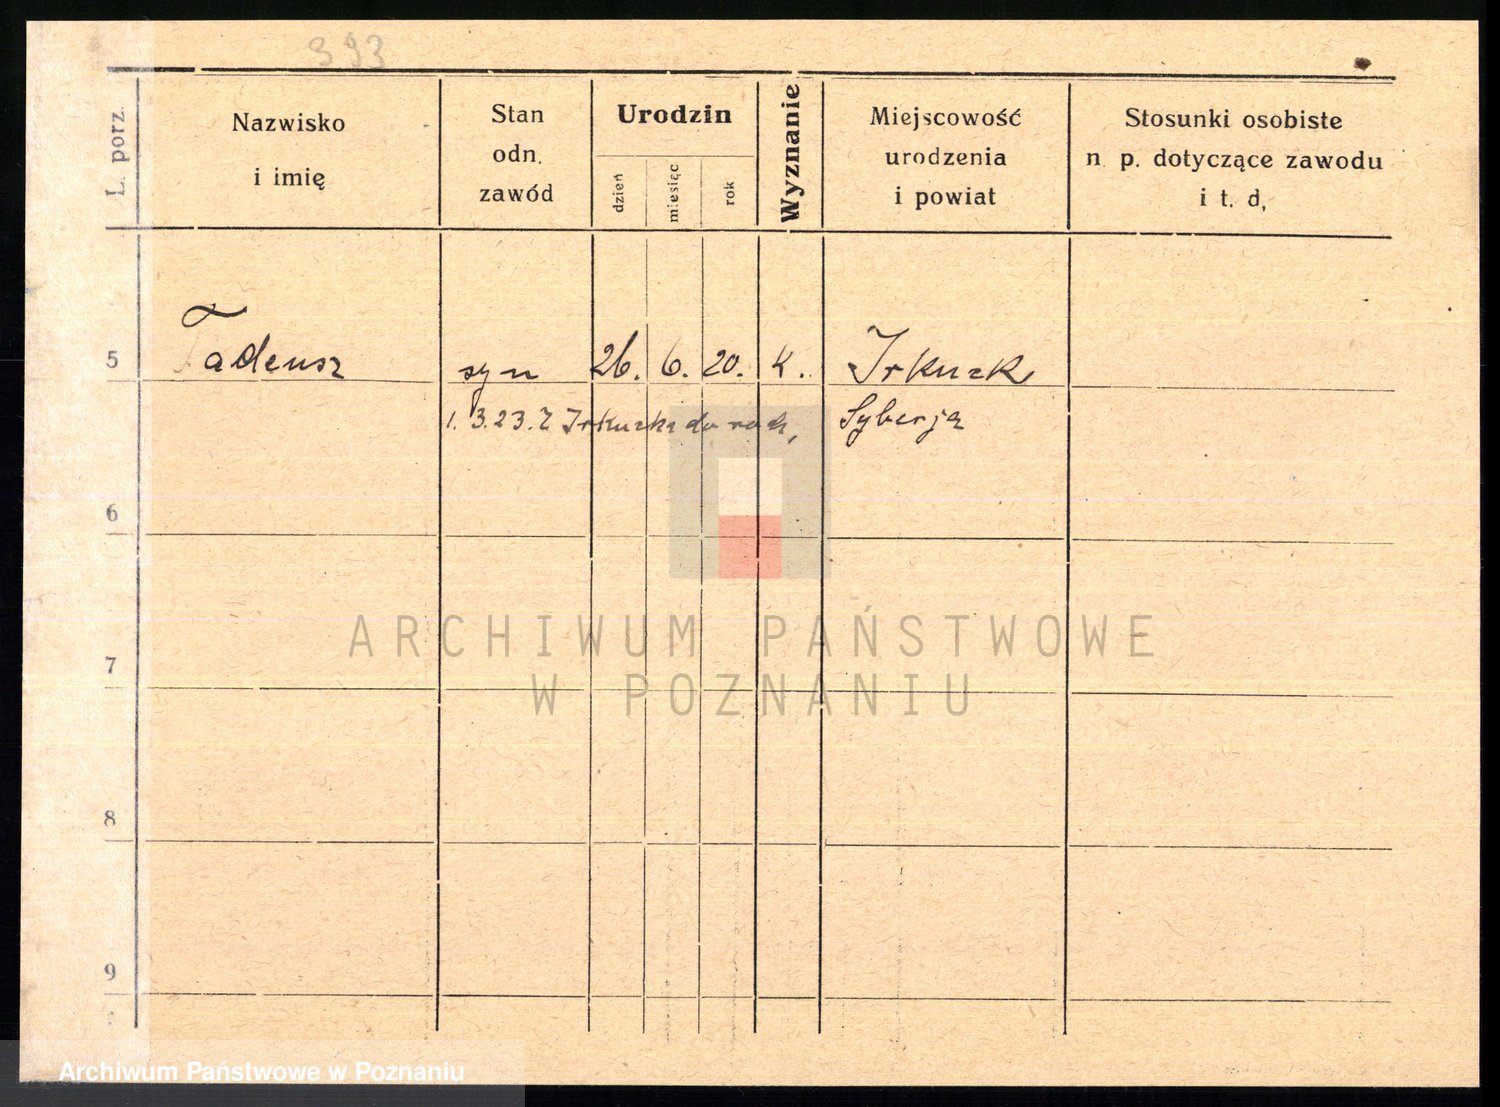 393
L. porz.
Nazwisko
i imię
Stan
odn.
zawód
Urodzin
dzień
miesiąc
rok
Wyznanie
Miejscowość
urodzenia
i powiat
Stosunki osobiste
n p. dotyczące zawodu
i t. d,
5 Tadeusz syn 26. 6. 20. K. Irkuck
1. 3. 23. Z Irkucka do rodz, Syberja
6
ARCHIWUM PAŃSTWOWE
7
W POZNANIU
8
9
Archiwum Państwowe w Poznaniu